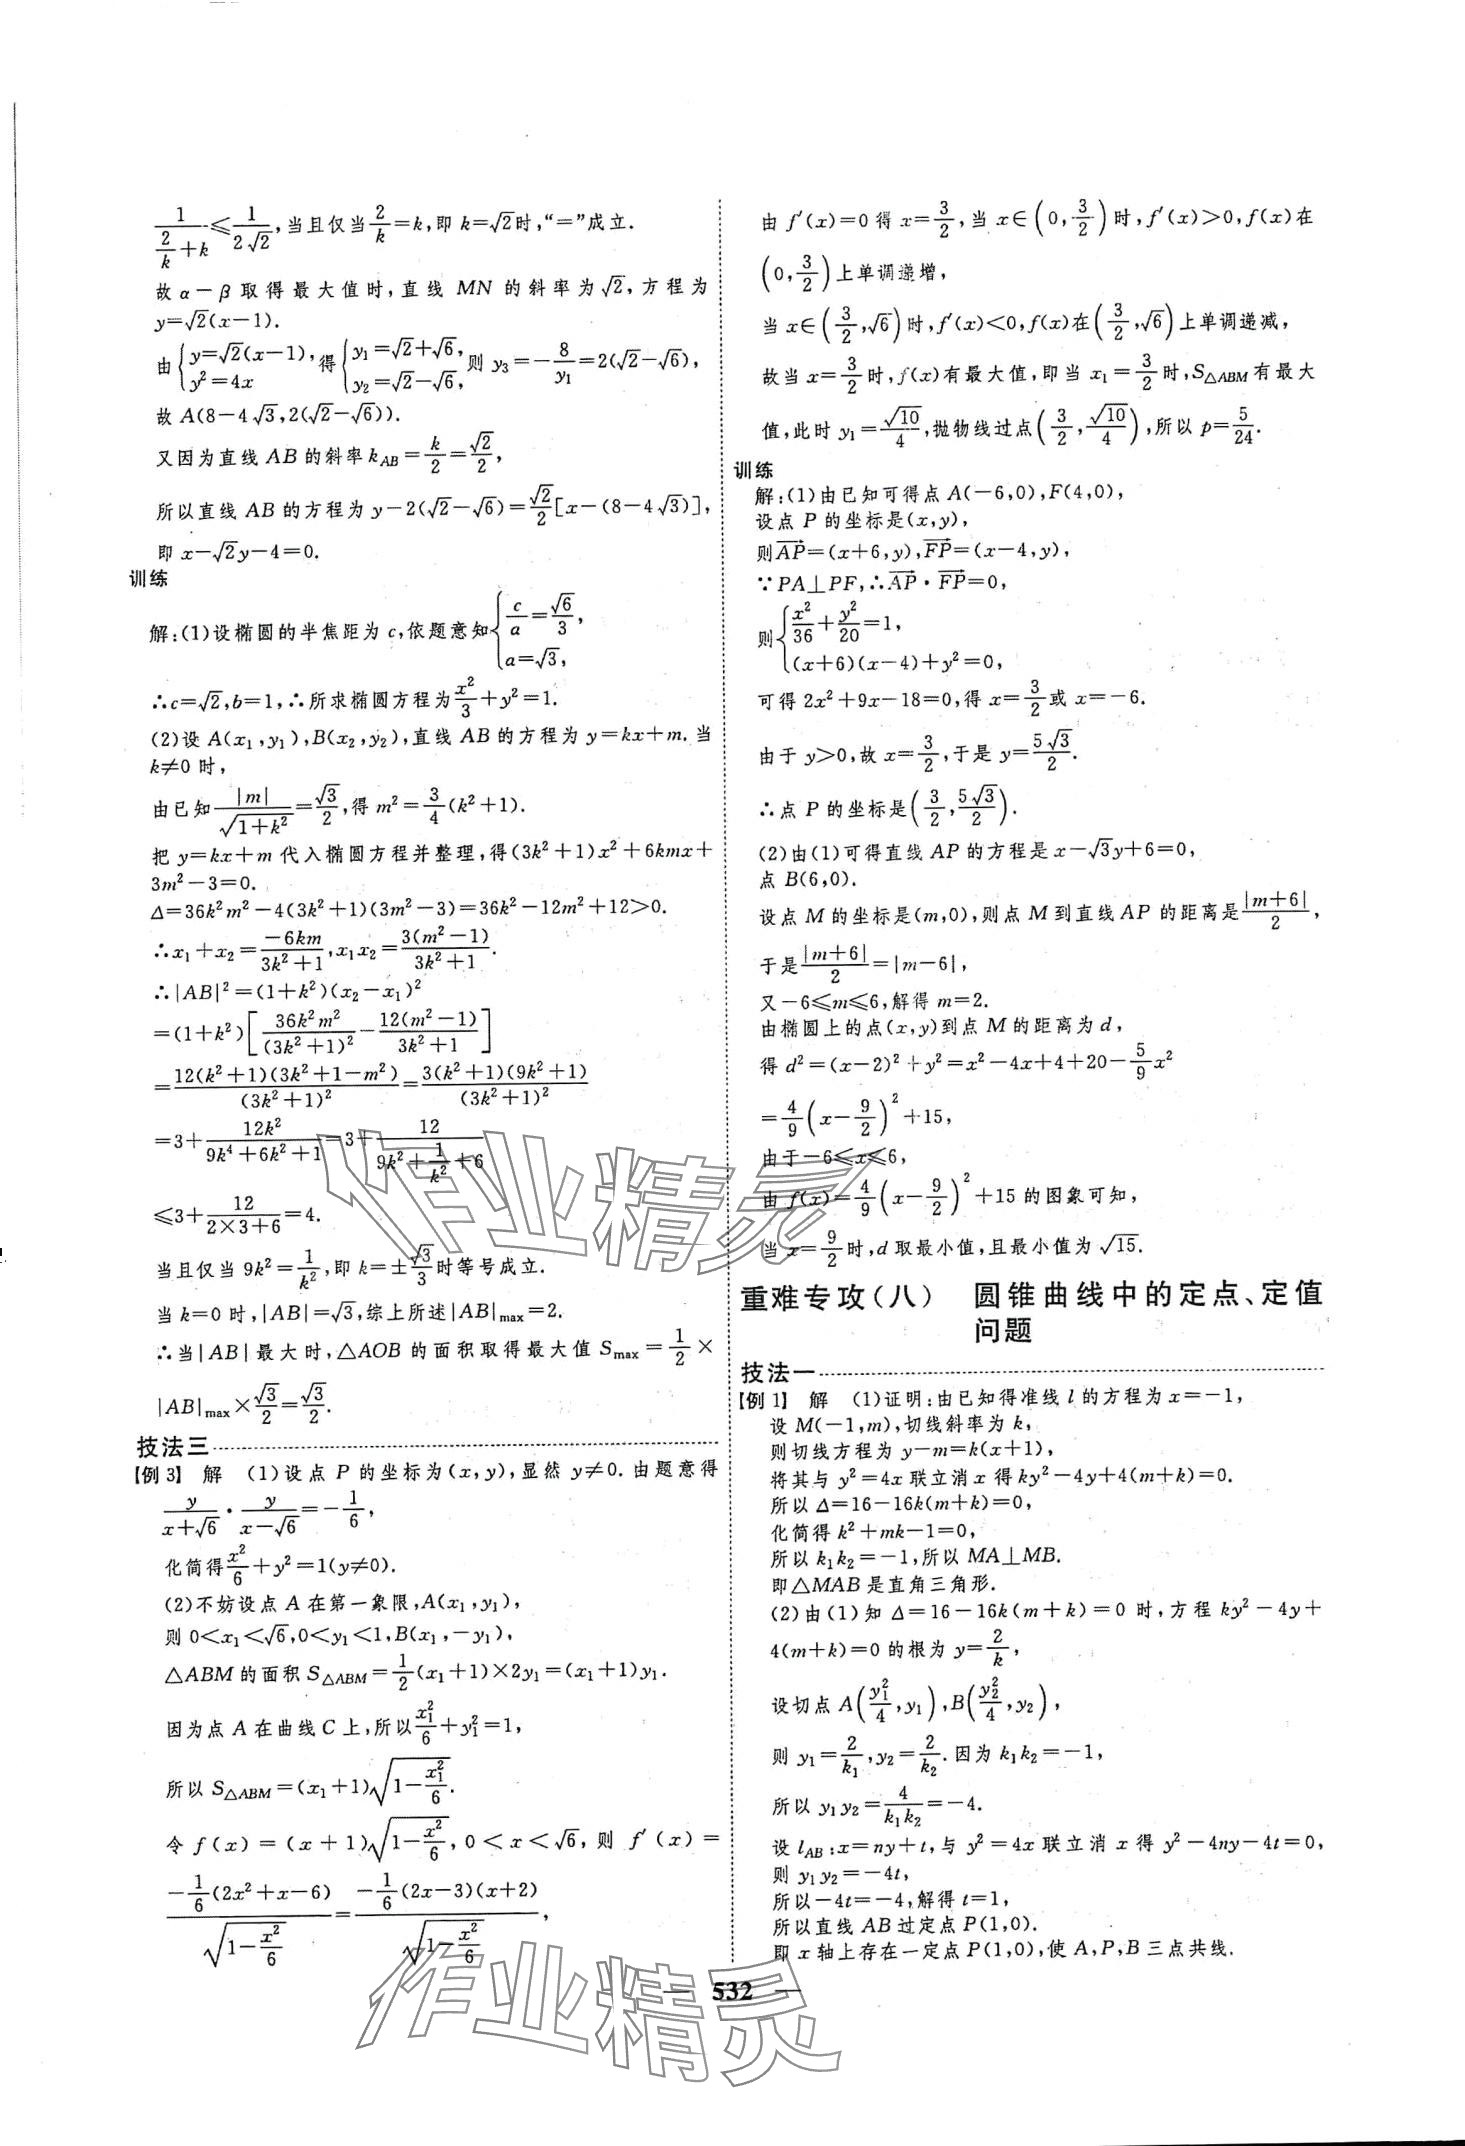 1/(2/k+k)≤1/(2√2),当且仅当2/k=k,即k=√2时,“=”成立.
故α-β取得最大值时,直线MN的斜率为√2,方程为
y=√2(x-1).
由{y=√2(x-1), y²=4x 得{y₁=√2+√6, y₂=√2-√6, 则y₃=-8/y₁=2(√2-√6),
故A(8-4√3,2(√2-√6)).
又因为直线AB的斜率k_AB=k/2=√2/2,
所以直线AB的方程为y-2(√2-√6)=√2/2[x-(8-4√3)],
即x-√2y-4=0.
训练
解:(1)设椭圆的半焦距为c,依题意知{c/a=√6/3, a=√3,
∴c=√2,b=1,∴所求椭圆方程为x²/3+y²=1.
(2)设A(x₁,y₁),B(x₂,y₂),直线AB的方程为y=kx+m.当
k≠0时,
由已知|m|/√(1+k²)=√3/2,得m²=3/4(k²+1).
把y=kx+m代入椭圆方程并整理,得(3k²+1)x²+6kmx+
3m²-3=0.
Δ=36k²m²-4(3k²+1)(3m²-3)=36k²-12m²+12>0.
∴x₁+x₂=-6km/(3k²+1),x₁x₂=3(m²-1)/(3k²+1).
∴|AB|²=(1+k²)(x₂-x₁)²
=(1+k²)[36k²m²/(3k²+1)²-12(m²-1)/(3k²+1)]
=12(k²+1)(3k²+1-m²)/(3k²+1)²=3(k²+1)(9k²+1)/(3k²+1)²
=3+12k²/(9k⁴+6k²+1)=3+12/(9k²+1/k²+6)
≤3+12/(2×3+6)=4.
当且仅当9k²=1/k²,即k=±√3/3时等号成立.
当k=0时,|AB|=√3,综上所述|AB|max=2.
∴当|AB|最大时,△AOB的面积取得最大值Smax=1/2×
|AB|max×√3/2=√3/2.
技法三
【例3】 解 (1)设点P的坐标为(x,y),显然y≠0.由题意得
y/(x+√6)·y/(x-√6)=-1/6,
化简得x²/6+y²=1(y≠0).
(2)不妨设点A在第一象限,A(x₁,y₁),
则0<x₁<√6,0<y₁<1,B(x₁,-y₁),
△ABM的面积S△ABM=1/2(x₁+1)×2y₁=(x₁+1)y₁.
因为点A在曲线C上,所以x₁²/6+y₁²=1,
所以S△ABM=(x₁+1)√(1-x₁²/6).
令f(x)=(x+1)√(1-x²/6),0<x<√6,则f′(x)=
-1/6(2x²+x-6)/√(1-x²/6)=-1/6(2x-3)(x+2)/√(1-x²/6),
由f′(x)=0得x=3/2,当x∈(0,3/2)时,f′(x)>0,f(x)在
(0,3/2)上单调递增,
当x∈(3/2,√6)时,f′(x)<0,f(x)在(3/2,√6)上单调递减,
故当x=3/2时,f(x)有最大值,即当x₁=3/2时,S△ABM有最大
值,此时y₁=√10/4,抛物线过点(3/2,√10/4),所以p=5/24.
训练
解:(1)由已知可得点A(-6,0),F(4,0),
设点P的坐标是(x,y),
则AP→=(x+6,y),FP→=(x-4,y),
∵PA⊥PF,∴AP→·FP→=0,
则{x²/36+y²/20=1, (x+6)(x-4)+y²=0,
可得2x²+9x-18=0,得x=3/2或x=-6.
由于y>0,故x=3/2,于是y=5√3/2.
∴点P的坐标是(3/2,5√3/2).
(2)由(1)可得直线AP的方程是x-√3y+6=0,
点B(6,0).
设点M的坐标是(m,0),则点M到直线AP的距离是|m+6|/2,
于是|m+6|/2=|m-6|,
又-6≤m≤6,解得m=2.
由椭圆上的点(x,y)到点M的距离为d,
得d²=(x-2)²+y²=x²-4x+4+20-5/9x²
=4/9(x-9/2)²+15,
由于-6≤x≤6,
由f(x)=4/9(x-9/2)²+15的图象可知,
当x=9/2时,d取最小值,且最小值为√15.
重难专攻(八) 圆锥曲线中的定点、定值
问题
技法一
【例1】 解 (1)证明:由已知得准线l的方程为x=-1,
设M(-1,m),切线斜率为k,
则切线方程为y-m=k(x+1),
将其与y²=4x联立消x得ky²-4y+4(m+k)=0.
所以Δ=16-16k(m+k)=0,
化简得k²+mk-1=0,
所以k₁k₂=-1,所以MA⊥MB.
即△MAB是直角三角形.
(2)由(1)知Δ=16-16k(m+k)=0时,方程ky²-4y+
4(m+k)=0的根为y=2/k,
设切点A(y₁²/4,y₁),B(y₂²/4,y₂),
则y₁=2/k₁,y₂=2/k₂.因为k₁k₂=-1,
所以y₁y₂=4/(k₁k₂)=-4.
设l_AB:x=ny+t,与y²=4x联立消x得y²-4ny-4t=0,
则y₁y₂=-4t,
所以-4t=-4,解得t=1,
所以直线AB过定点P(1,0).
即x轴上存在一定点P(1,0),使A,P,B三点共线.
— 532 —
作业精灵
作业精灵